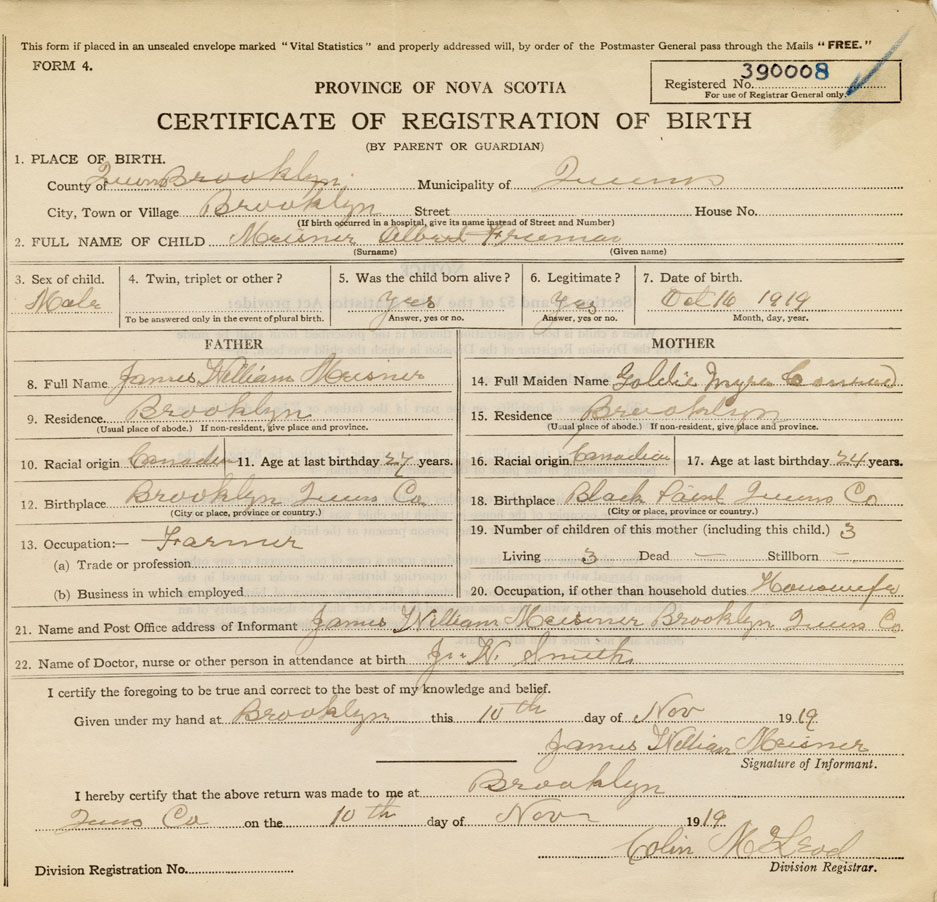 This form if placed in an unsealed envelope marked "Vital Statistics" and properly addressed will, by order of the Postmaster General pass through the Mails "FREE."
FORM 4.
Registered No. 390008
For use of Registrar General only.
PROVINCE OF NOVA SCOTIA
CERTIFICATE OF REGISTRATION OF BIRTH
(BY PARENT OR GUARDIAN)
1. PLACE OF BIRTH.
County of Queens Brooklyn Municipality of Queens
City, Town or Village Brooklyn Street House No.
(If birth occurred in a hospital, give its name instead of Street and Number)
2. FULL NAME OF CHILD Meisner Albert Freeman
(Surname) (Given name)
3. Sex of child. 4. Twin, triplet or other? 5. Was the child born alive? 6. Legitimate? 7. Date of birth.
Male Yes Yes Oct 16 1919
To be answered only in the event of plural birth. Answer, yes or no. Answer, yes or no. Month, day, year.
FATHER
8. Full Name James William Meisner
9. Residence. Brooklyn
(Usual place of abode.) If non-resident, give place and province.
10. Racial origin Canadien 11. Age at last birthday 27 years.
12. Birthplace Brooklyn Queens Co.
(City or place, province or country.)
13. Occupation:— Farmer
(a) Trade or profession
(b) Business in which employed
MOTHER
14. Full Maiden Name Goldie
15. Residence Brooklyn
(Usual place of abode.) If non-resident, give place and province.
16. Racial origin Canadien 17. Age at last birthday 24 years.
18. Birthplace Black Point Queens Co
(City or place, province or country.)
19. Number of children of this mother (including this child.) 3
Living 3 Dead — Stillborn —
20. Occupation, if other than household duties Housewife
21. Name and Post Office address of Informant James William Meisner Brooklyn Queens Co.
22. Name of Doctor, nurse or other person in attendance at birth W. Smith
I certify the foregoing to be true and correct to the best of my knowledge and belief.
Given under my hand at Brooklyn this 10th day of Nov 1919.
James William Meisner
Signature of Informant.
I hereby certify that the above return was made to me at Brooklyn
Queens Co on the 10th day of Nov 1919.
Colin McLeod
Division Registration No. Division Registrar.